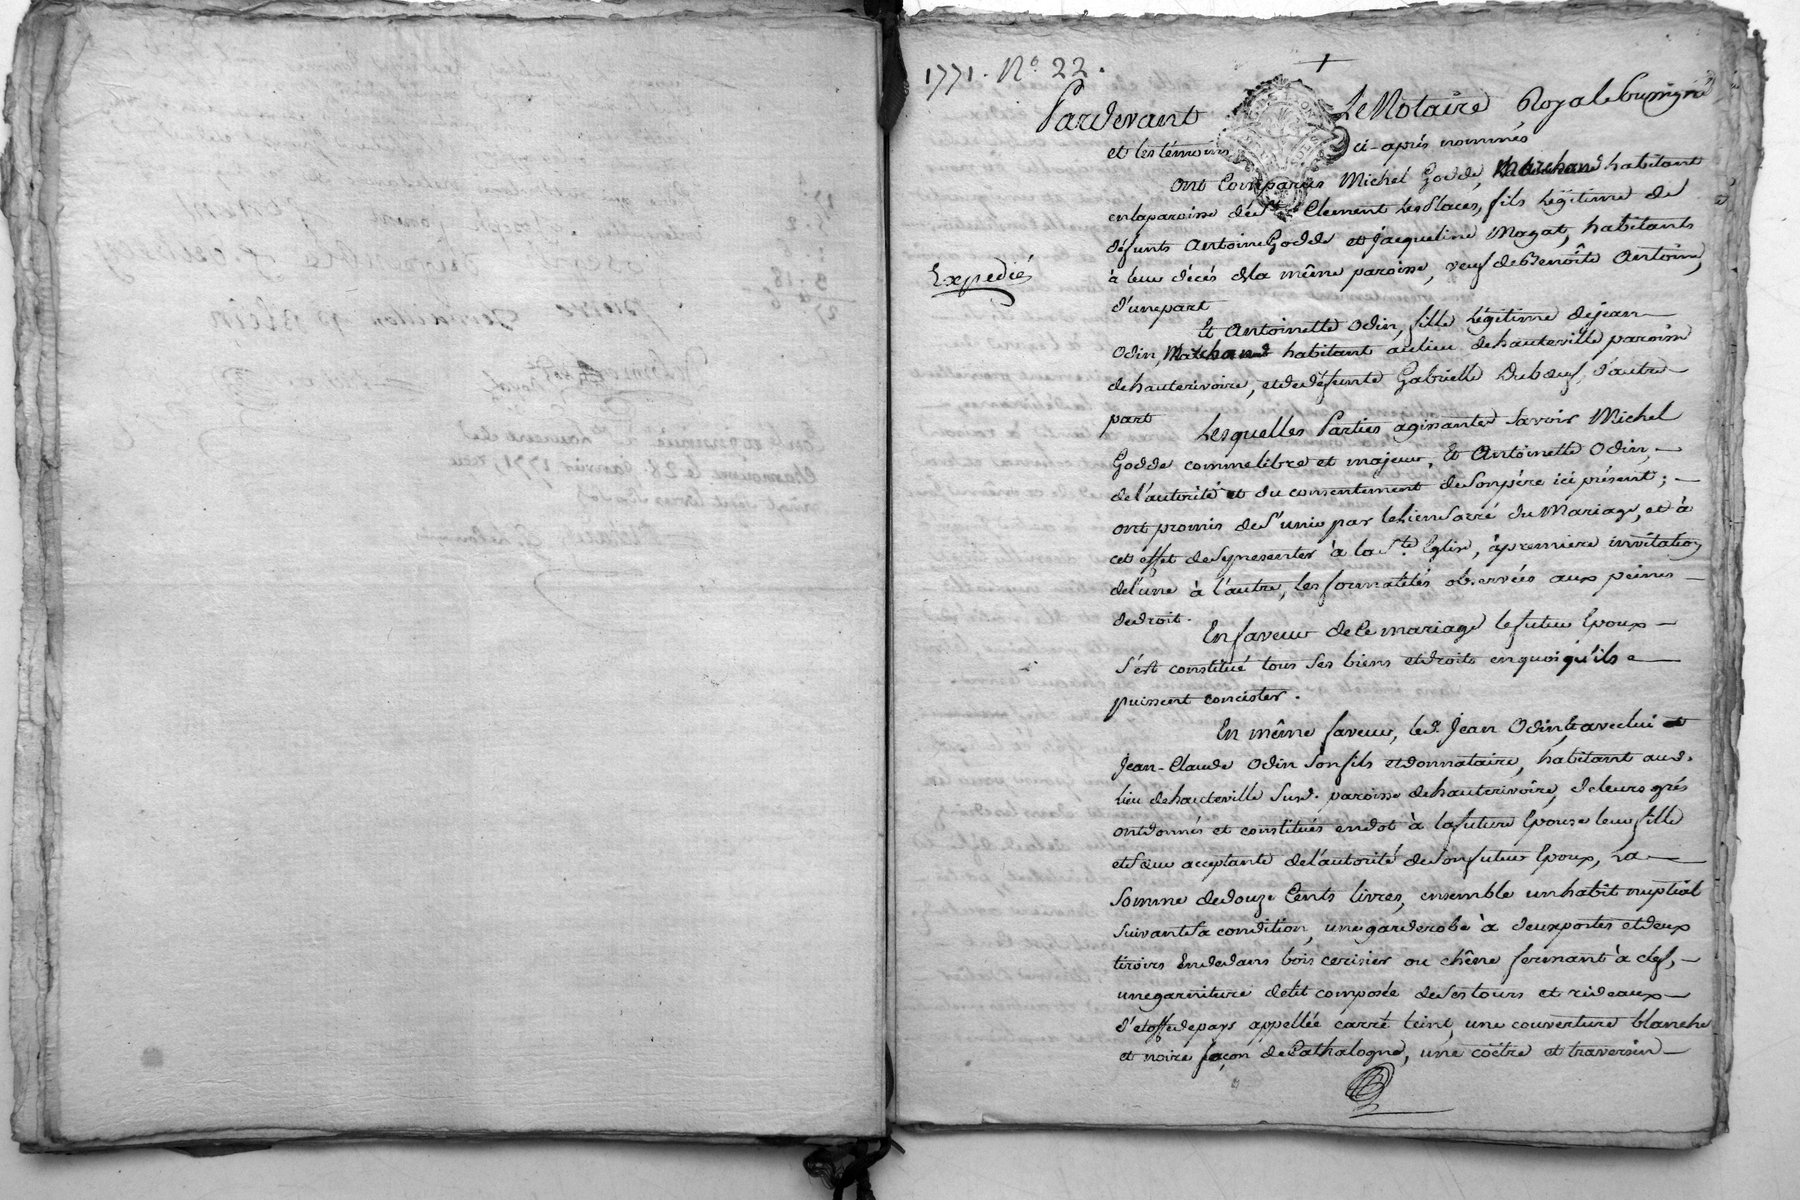 1771. N.º 22.
Pardevant Le Notaire Royal soussigné
et les témoins ci-après nommés
ont Comparus Michel Godde, Marchand habitant
en la paroisse de St Clement Les Places, fils légitime de
défunts Antoine Godde et Jacqueline Magat, habitants
à leur décés de la même paroisse, veuf de Benoîte Antoine,
d'une part
Expedié
Et Antoinette Odin, fille légitime de jean
Odin, Marchand habitant au lieu de hauteville paroisse
de hauterivoire, et de défunte Gabrielle Duboeuf, d'autre
part
Lesquelles Parties agissantes savoir Michel
Godde comme libre et majeur, Et Antoinette Odin,
de l'autorité et du consentement de son père ici présent;
ont promis de s'unir par le Lien sacré du Mariage, et à
cet effet de se presenter à la Ste Eglise, à premiere invitation
de l'une à l'autre, les formalités observées aux peines
de droit.
En faveur de Ce mariage le futur Epoux
s'est constitué tous ses biens et droits en quoi qu'ils
puissent concister.
En même faveur, led. Jean Odin, & avec lui
Jean-Claude Odin son fils et donnataire, habitant aud.
lieu de hauteville susd. paroisse de hauterivoire, de leurs grés
ont donnés et constitués en dot à la future Epouse leur fille
et sœur acceptante de l'autorité de son futur Epoux, La
somme de douze Cents livres, ensemble un habit nuptial
suivant sa condition, une garderobe à deux portes et deux
tiroirs En dedans bois cerisier ou chêne fermant à clef,
une garniture de lit composée de ses tours et rideaux
d'etoffe de pays appellée carré teint, une couverture blanche
et noire façon de Cathalogne, une coëtre et traversin